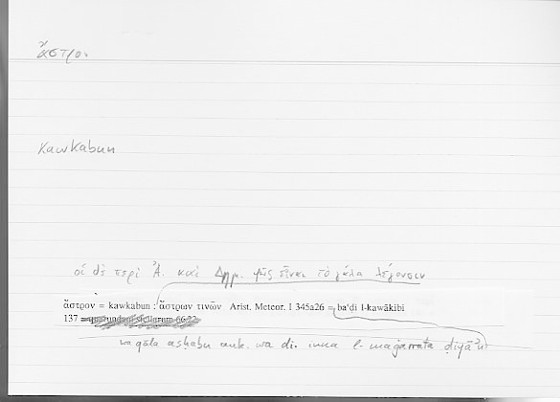 ἄστρον
kawkabun
οἱ δὲ περὶ Ἀ. καὶ Δημ. φῶς εἶναι τὸ γάλα λέγουσιν
ἄστρον = kawkabun : ἄστρων τινῶν Arist. Meteor. I 345a26 = ba'ḍi l-kawākibi
137
wa qāla aṣḥabu ank. wa di. inna l-maǧarrata ḍiyā'u